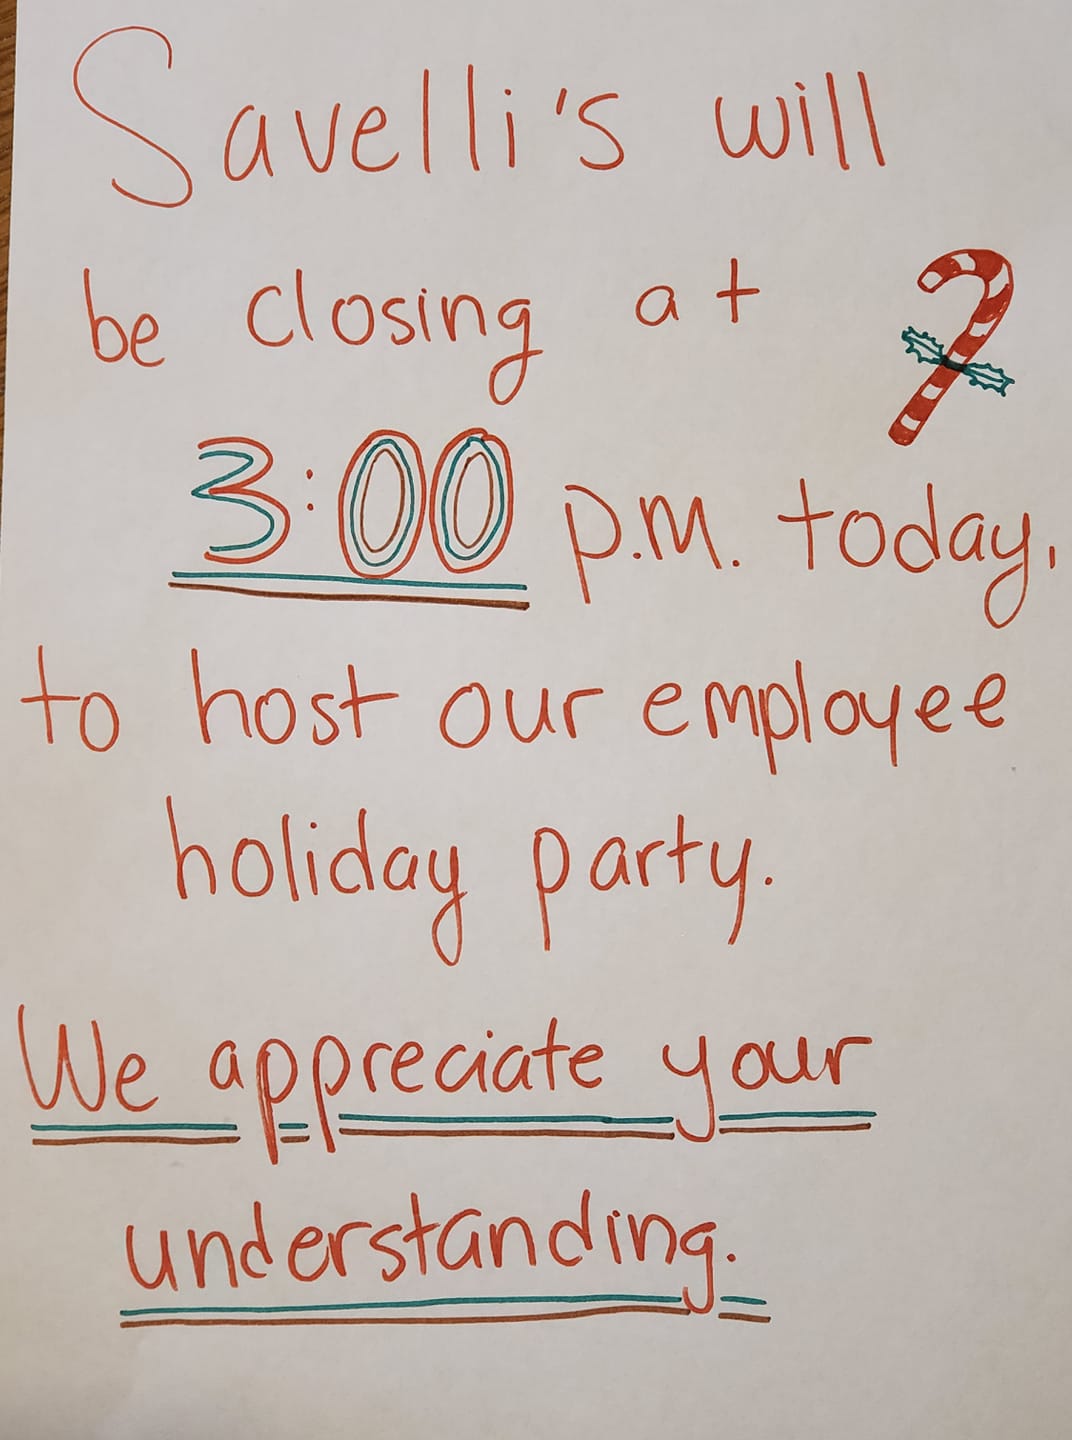 Savelli's will
be closing at
3:00 p.m. today,
to host our employee
holiday party.
We appreciate your
understanding.